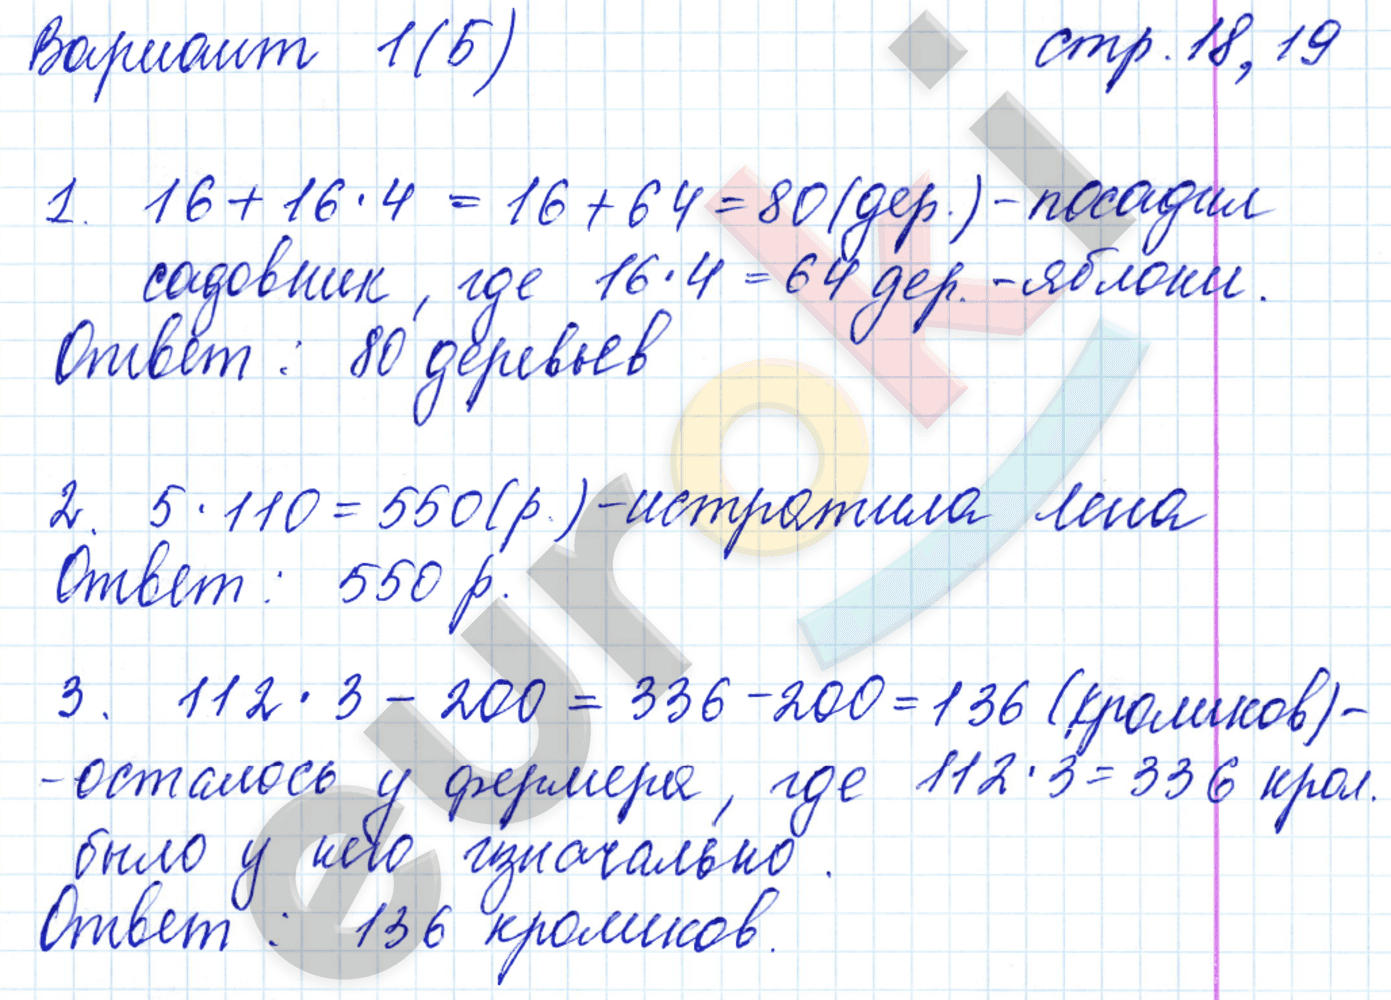 Вариант 1(Б) стр. 18, 19
1. 16 + 16 · 4 = 16 + 64 = 80 (дер.) - посадил
садовник, где 16 · 4 = 64 дер. - яблони.
Ответ: 80 деревьев
2. 5 · 110 = 550 (р.) - истратила лена
Ответ: 550 р.
3. 112 · 3 - 200 = 336 - 200 = 136 (кроликов) -
- осталось у фермера, где 112 · 3 = 336 крол.
было у него изначально.
Ответ: 136 кроликов.
euroki